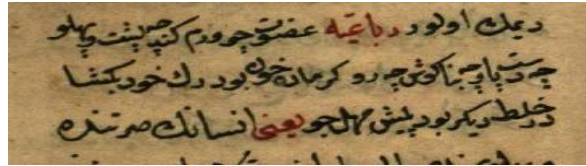 دیمك اولور رباعیه عضو تو چو ورم کند چه پشت و پهلو
چه دست و پا و چه بناکوش چه رو کر ماده خون بود رك خود بکشا
ور خلط دیکر بود جو یعنی انسانك صرتنده